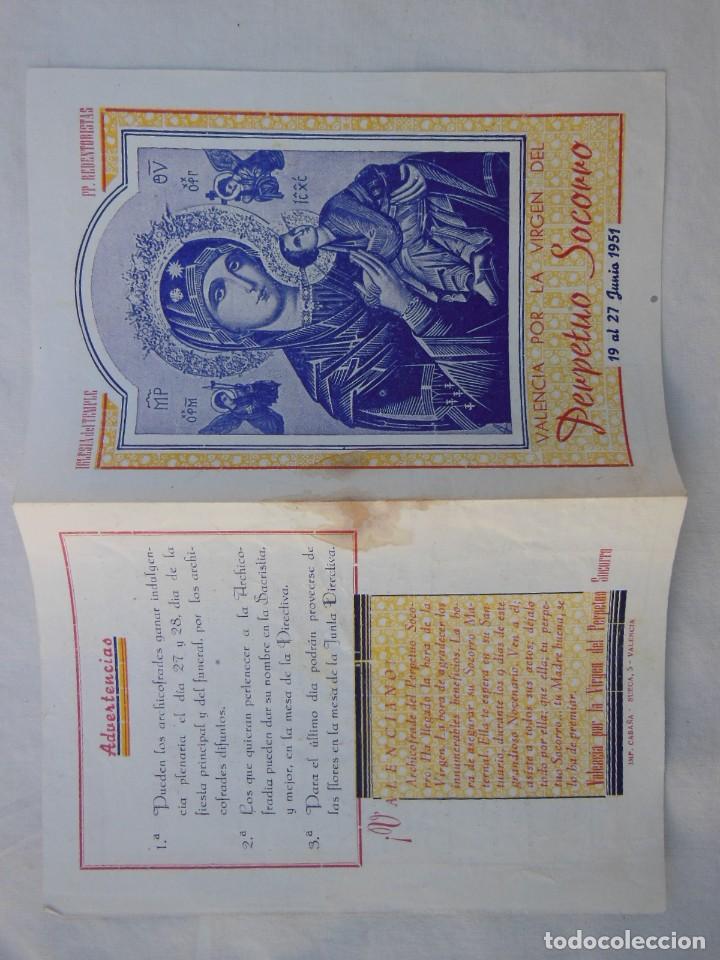 Advertencias
1.ª Pueden los archicofrades ganar indulgen-
cia plenaria el día 27 y 28, día de la
fiesta principal y del funeral, por los archi-
cofrades difuntos.
2.ª Los que quieran pertenecer a la Archico-
fradía pueden dar su nombre en la Sacristía,
y mejor, en la mesa de la Directiva.
3.ª Para el último día podrán proveerse de
las flores en la mesa de la Junta Directiva.
¡VALENCIANO!
Archicofrade del Perpetuo Soco-
rro: Ha llegado la hora de la
Virgen. La hora de agradecer sus
innumerables beneficios. La ho-
ra de asegurar su Socorro Ma-
ternal. Ella te espera en su San-
tuario durante los 9 días de este
grandioso Novenario. Ven a él;
asiste a todos sus actos; déjalo
todo por ella; que ella, tu perpe-
tuo Socorro, tu Madre buena, se
lo ha de premiar.
Valencia por la Virgen del Perpetuo Socorro
IMP. CABAÑA - SUECA, 5 - VALENCIA
IGLESIA del TEMPLE
PP. REDENTORISTAS
M̅P̅
ΘV̅
ΟΡΜ
ΟΡΓ
ΙC̅ΧC̅
VALENCIA POR LA VIRGEN DEL
Perpetuo Socorro
19 al 27 Junio 1951
todocoleccion